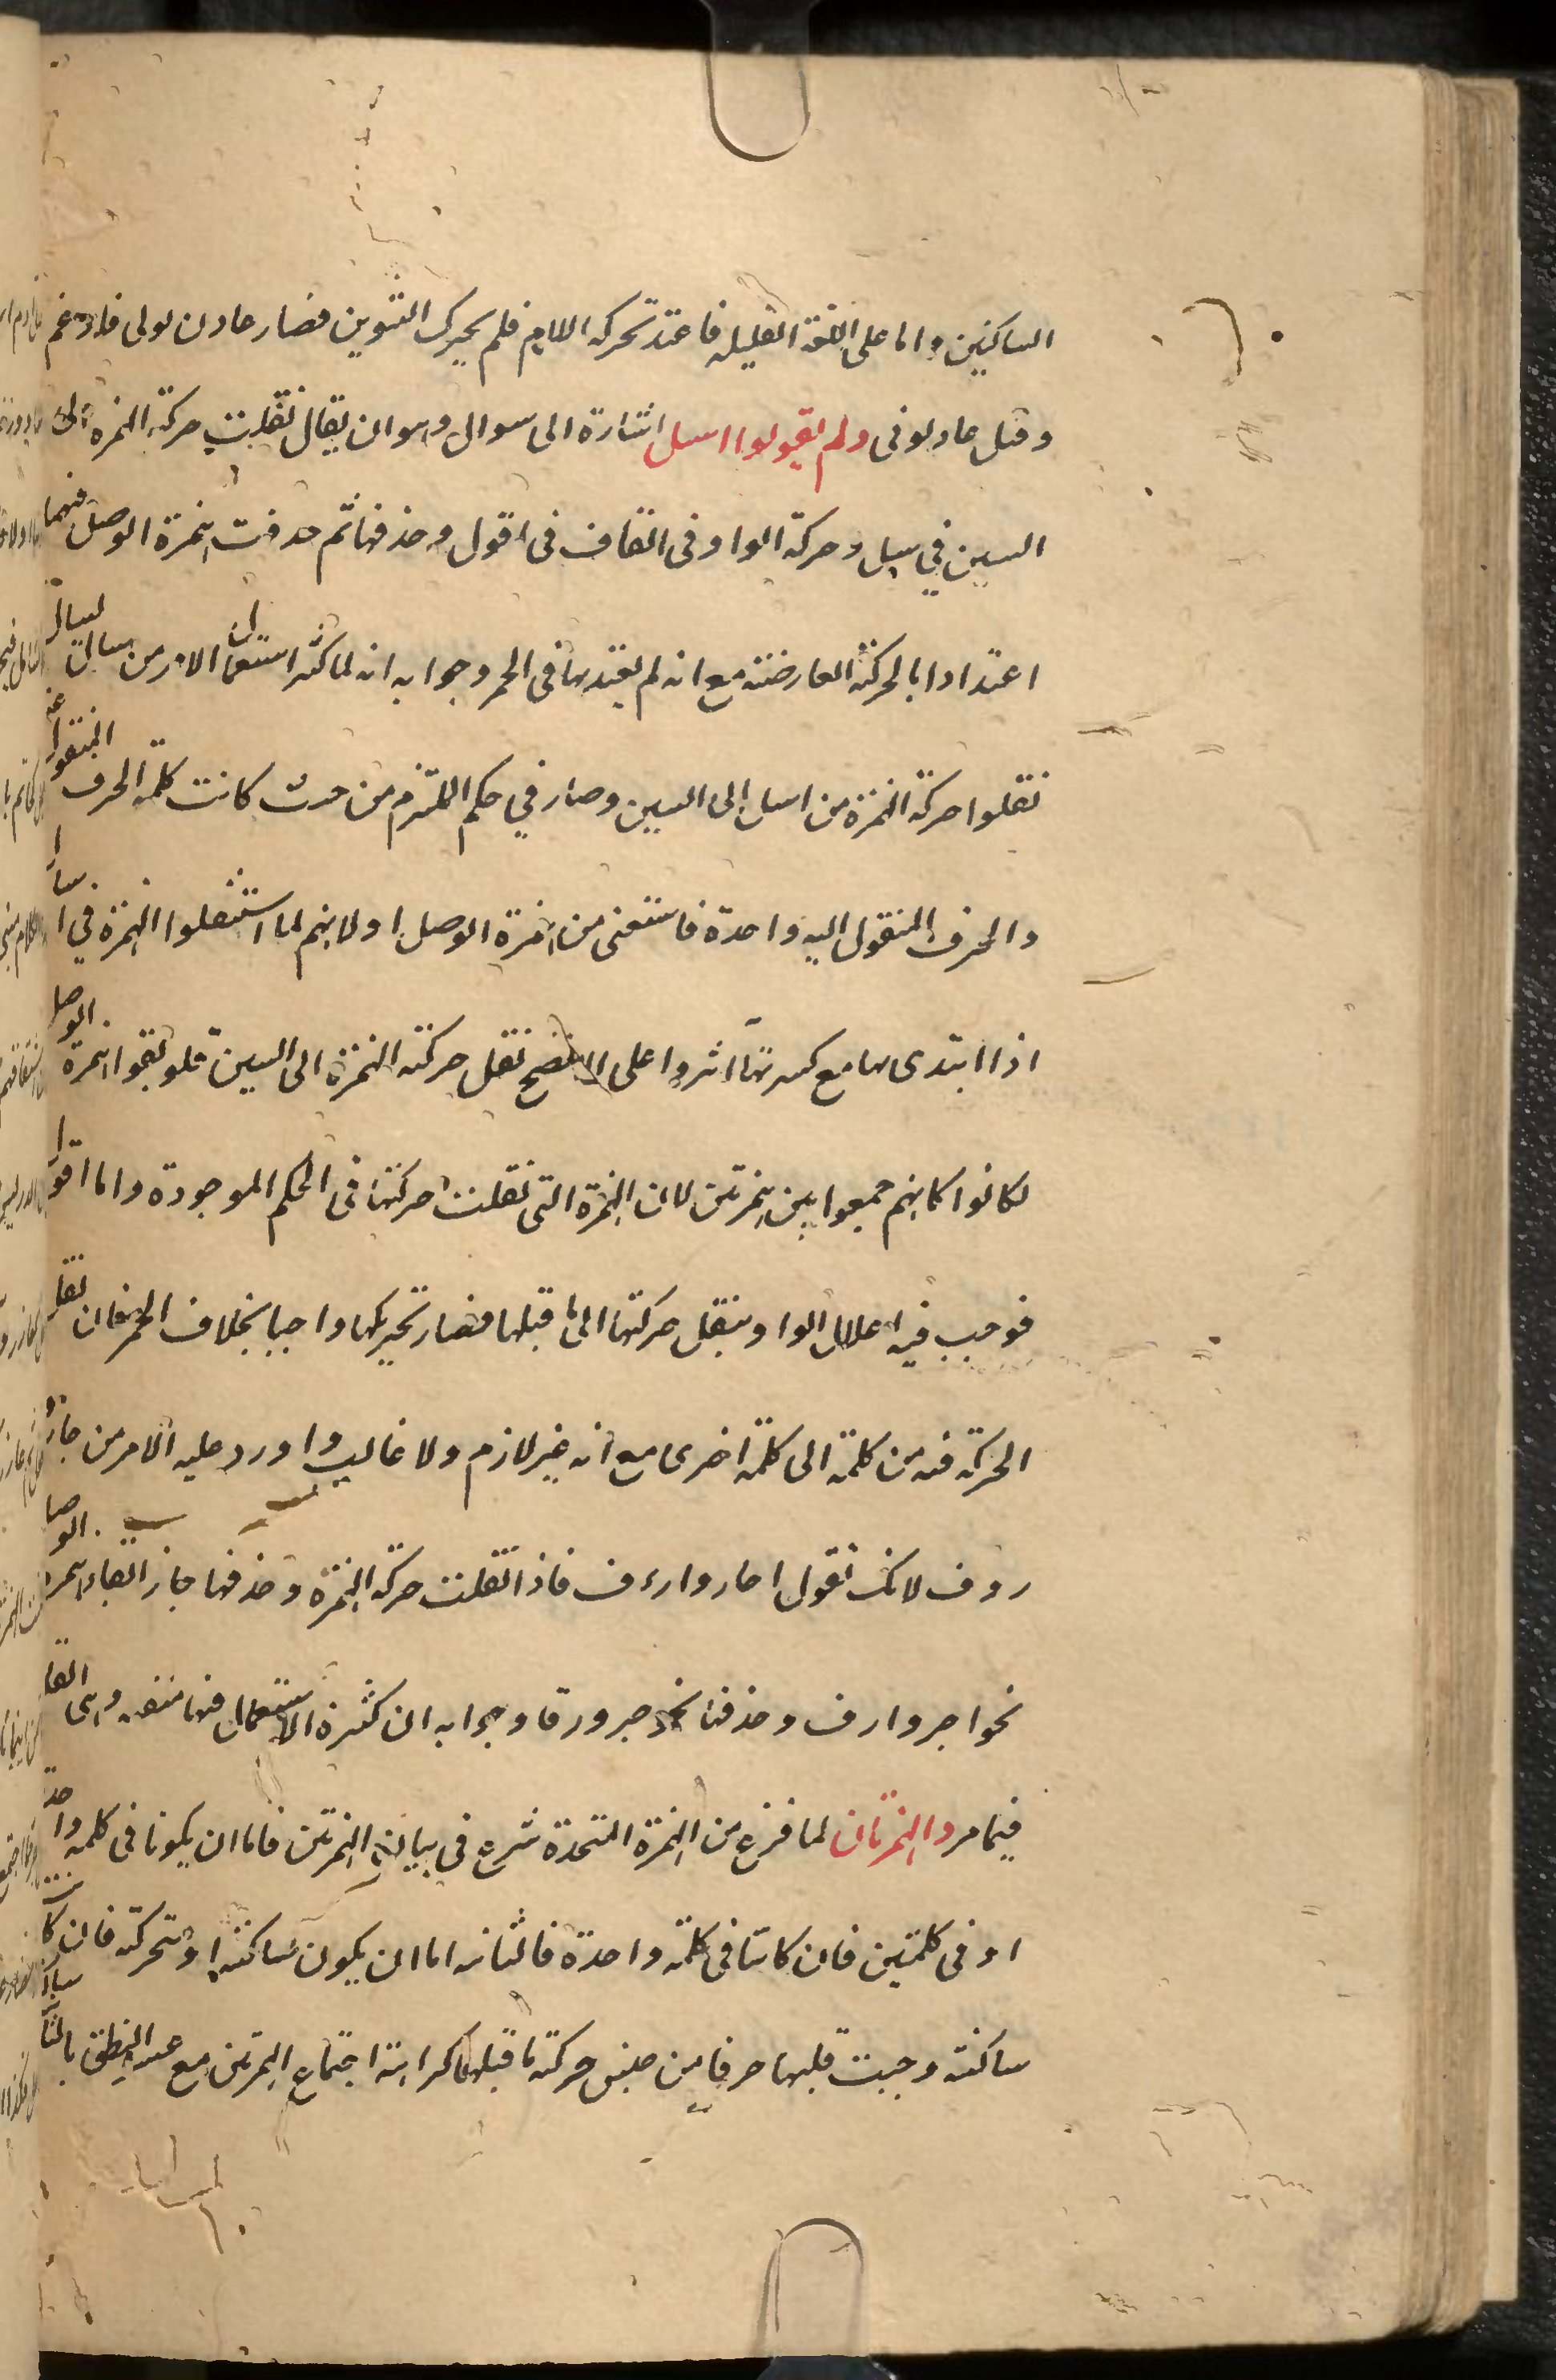 الساكنين واما على اللغة القليله فاعتد تحركه اللام فلم يحرك التنوين فصار عادن لولى فادغم
وقيل عاد لولى ولم يقولوا اسل اشارة الى سوال وهو ان يقال نقلت حركة الهمزة الى
السين في سل وحركة الواو فى القاف فى اقول وحذفها ثم حذفت همزة الوصل فيهما
اعتدادا بالحركة العارضة مع انه لم يعتد بها فى الحمر وجوابه انه لما كثر استعمال الامر من سال يسال
نقلوا حركة الهمزة من اسل الى السين وصار في حكم الملتزم من حيث كانت كلمة الحرف المنقول عنه
والحرف المنقول اليه واحدة فاستغنى من همزة الوصل اولا نهم لما استثقلوا الهمزة في اسأل
اذا ابتدى بها مع كسرتها اثروا على الافصح نقل حركة الهمزة الى السين فلو بقوا همزة الوصل
لكانوا كانهم جمعوا بين همزتين لان الهمزة التى نقلت حركتها فى الحكم الموجودة واما اقول
فوجب فيه اعلال الواو بنقل حركتها الى ما قبلها فصار تحريكها واجبا بخلاف الحمر فان نقل
الحركة فيه من كلمة الى كلمة اخرى مع انه غير لازم ولا غالب واورد عليه الامر من جار و
روف لانك تقول اجار وارءف فاذا نقلت حركة الهمزة وحذفها جاز ابقاء همزة الوصل
نحو اجر وارف وحذفها نحو جر ورف وجوابه ان كثرة الاستعمال فيها منتفيه وهى
فيما مر والهمزتان لما فرغ من الهمزة المتحدة شرع فى بيان الهمزتين فاما ان يكونا فى كلمه واحدة
او فى كلمتين فان كانتا فى كلمة واحدة فالثانيه اما ان يكون ساكنة او متحركة فان كانت
ساكنة وجبت قلبها حرفا من جنس حركة ما قبلها كراهة اجتماع الهمزتين مع عسر النطق بالثانية